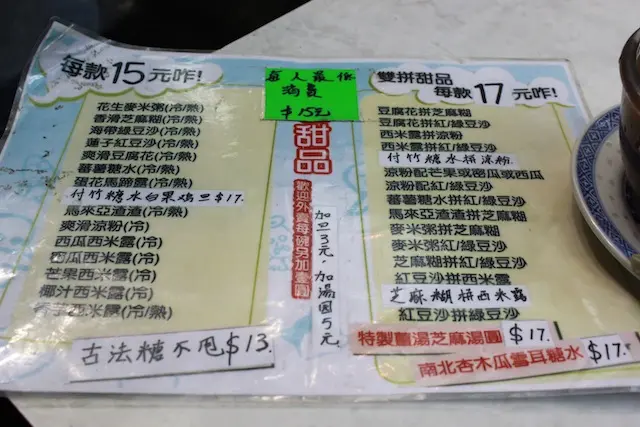 每款15元咋!
花生麥米粥(冷/熱)
香滑芝麻糊(冷/熱)
海帶綠豆沙(冷/熱)
蓮子紅豆沙(冷/熱)
爽滑豆腐花(冷/熱)
蕃薯糖水(冷/熱)
蛋花馬蹄露(冷/熱)
付竹糖水白果鸡旦$17.
馬來亞渣渣(冷/熱)
爽滑涼粉(冷)
西瓜西米露(冷)
密瓜西米露(冷)
芒果西米露(冷)
椰汁西米露(冷/熱)
西米露(冷/熱)
古法糖不甩$13.
每人最低
$15元
甜品
歡迎外賣每碗另加壹圓
加旦3元,加湯圆5元
雙拼甜品
每款17元咋!
豆腐花拼芝麻糊
豆腐花拼紅/綠豆沙
西米露拼涼粉
西米露拼紅/綠豆沙
付竹糖水拼涼粉
涼粉配芒果或密瓜或西瓜
涼粉配紅/綠豆沙
蕃薯糖水拼紅/綠豆沙
馬來亞渣渣拼芝麻糊
麥米粥拼芝麻糊
麥米粥拼紅/綠豆沙
芝麻糊拼紅/綠豆沙
紅豆沙拼西米露
芝麻糊拼西米露
紅豆沙拼綠豆沙
特製薑湯芝麻湯圓 $17.
南北杏木瓜雪耳糖水 $17.